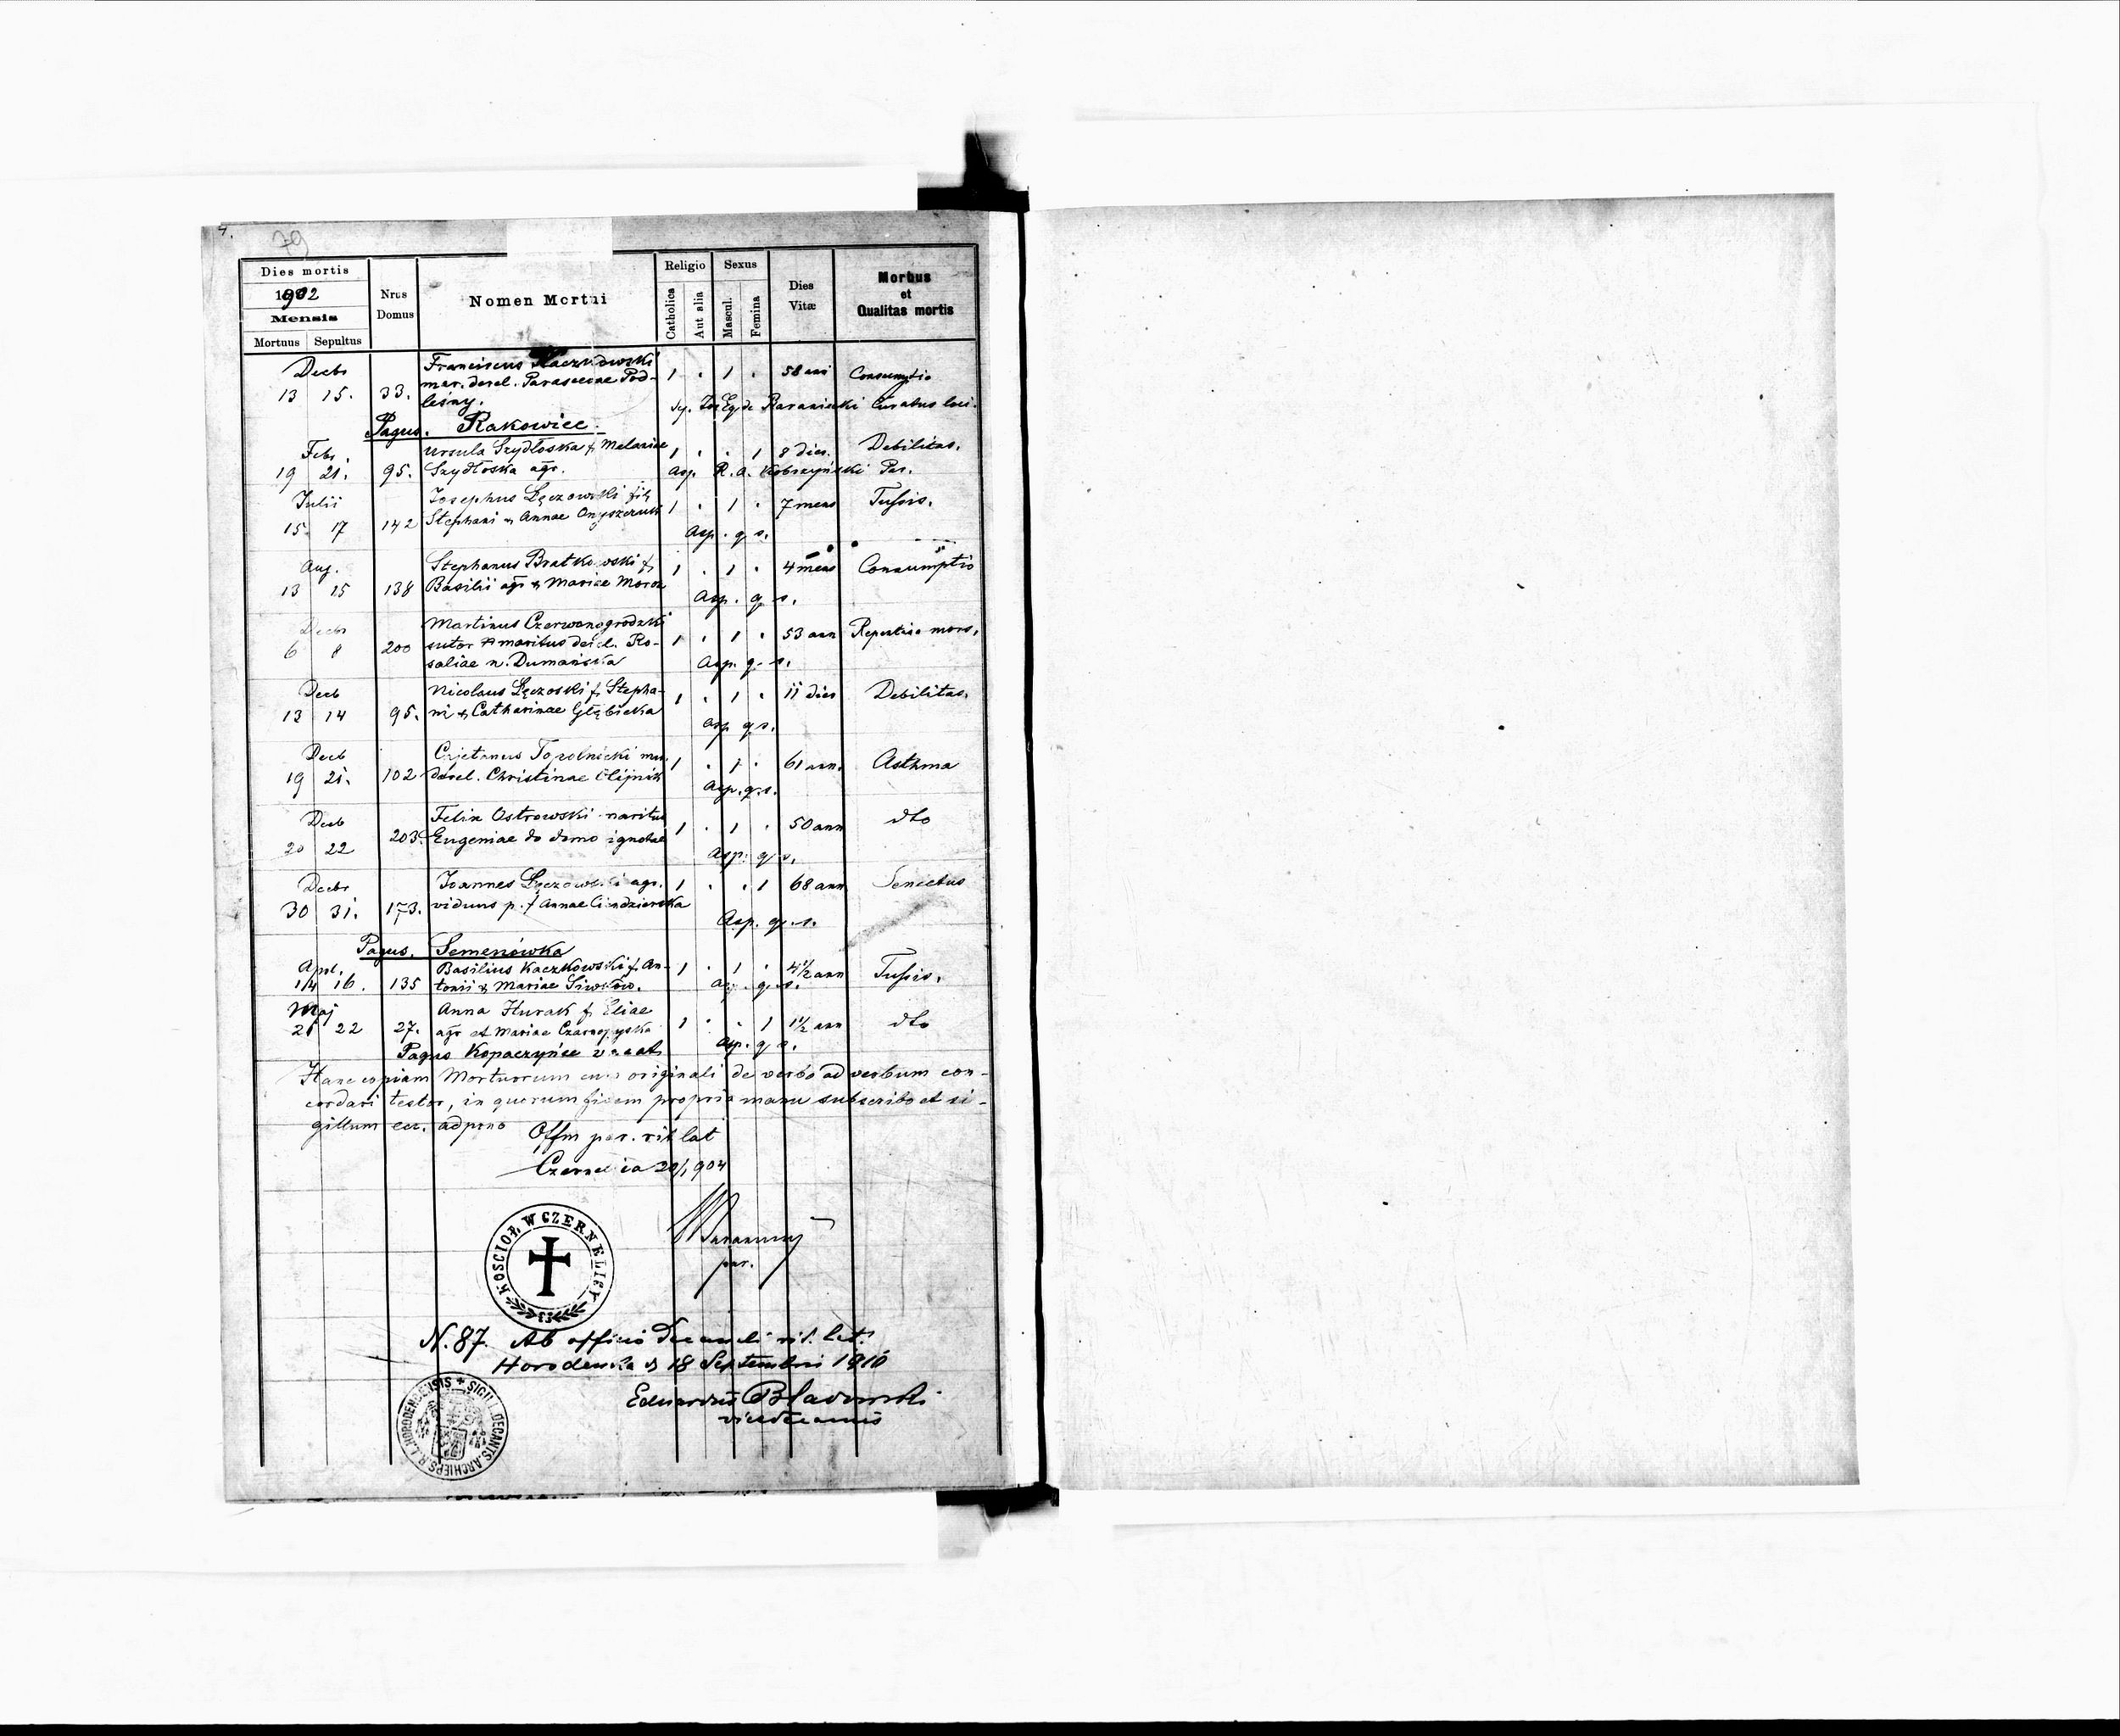 4.
79
Dies mortis
1902
Mensis
Mortuus Sepultus
Nrus Domus
Nomen Mortui
Religio
Catholica
Aut alia
Sexus
Mascul.
Femina
Dies Vitæ
Morbus et Qualitas mortis
Decbr
Franciscus Kaczkowski
mar. derel. Parascevae Pod- 1 . 1 . 58 ani Consumptio
13 15. 33. leśny.
Curatus loci.
Pagus. Rakowiec.
Febr. Ursula Szydłoska f. Melaniae 1 . . 1 8 dies. Debilitas.
19 21. 95. Szydłoska agr. Asp. R. A. Kobrzyński Par.
Julii Josephus Łęczowski fil.
15 17 142 Stephani & Annae Onyszczuk 1 . 1 . 7 mens Tussis.
Asp. q s.
Aug. Stephanus Bratkowski f. 1 . 1 . 4 mens Consumptio
13 15 138 Basilii agr & Mariae Moroz
Asp. q s.
Decbr Martinus Czerwonogrodzki
6 8 200 sutor maritus derel. Ro- 1 . 1 . 53 ann Repentina mors.
saliae n. Dumańska Asp. q. s.
Decb Nicolaus Łęczoski f. Stepha- 1 . 1 . 11 dies Debilitas.
13 14 95. ni & Catharinae Głębicka
Asp q s.
Decb Cajetanus Topolnicki mar. 1 . 1 . 61 ann. Asthma
19 21. 102 derel. Christinae Olijnik
Asp. q. s.
Decb Felix Ostrowski maritus 1 . 1 . 50 ann dto
20 22 203. Eugeniae de domo ignotae
Asp. q s.
Decbr Joannes Łęczowski agr. 1 . . 1 68 ann Senectus
30 31. 173. viduus p. f Annae
Asp. q. s.
Pagus. Semenówka
Apr. Basilius Kaczkowski f. An- 1 . 1 . 4 1/2 ann Tussis.
14 16. 135 tonii & Mariae Asp. q. s.
Maj Anna Hurak f. Eliae
21 22 27. agr et Mariae 1 . . 1 1 1/2 ann dto
Asp. q s.
Pagus Kopaczyńce vacat
Hanc copiam Mortuorum cum originali de verbo ad verbum con-
cordari testor, in quorum fidem propria manu subscribo et si-
gillum ecc. adpono
Offm par. rit lat
Czernelica 20/1 904
par.
KOŚCIOŁ W CZERNELICY
N. 87. Ab officio Decanali rit. lat.
Horodenka d 18 Septembri 1910
Eduardus Bładowski
vicedecanus
SIGILL. DECANTS. ARCHIEPS. R. L. HORODENKENSIS